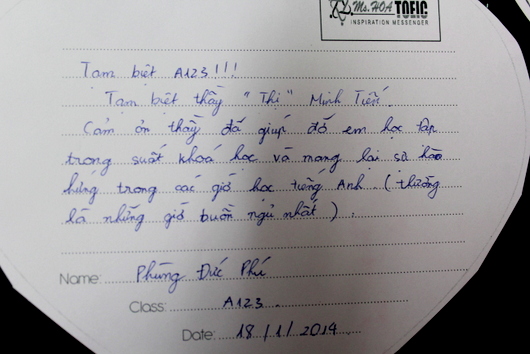 Ms. HOA TOEIC
INSPIRATION MESSENGER
Tạm biệt A123!!!
Tạm biệt thầy "Thị" Minh Tiến.
Cảm ơn thầy đã giúp đỡ em học tập
trong suất khoá học và mang lại sự hào
hứng trong các giờ học tiếng Anh. (thường
là những giờ buồn ngủ nhất).
Name: Phùng Đức Phú
Class: A123
Date: 18/1/2014